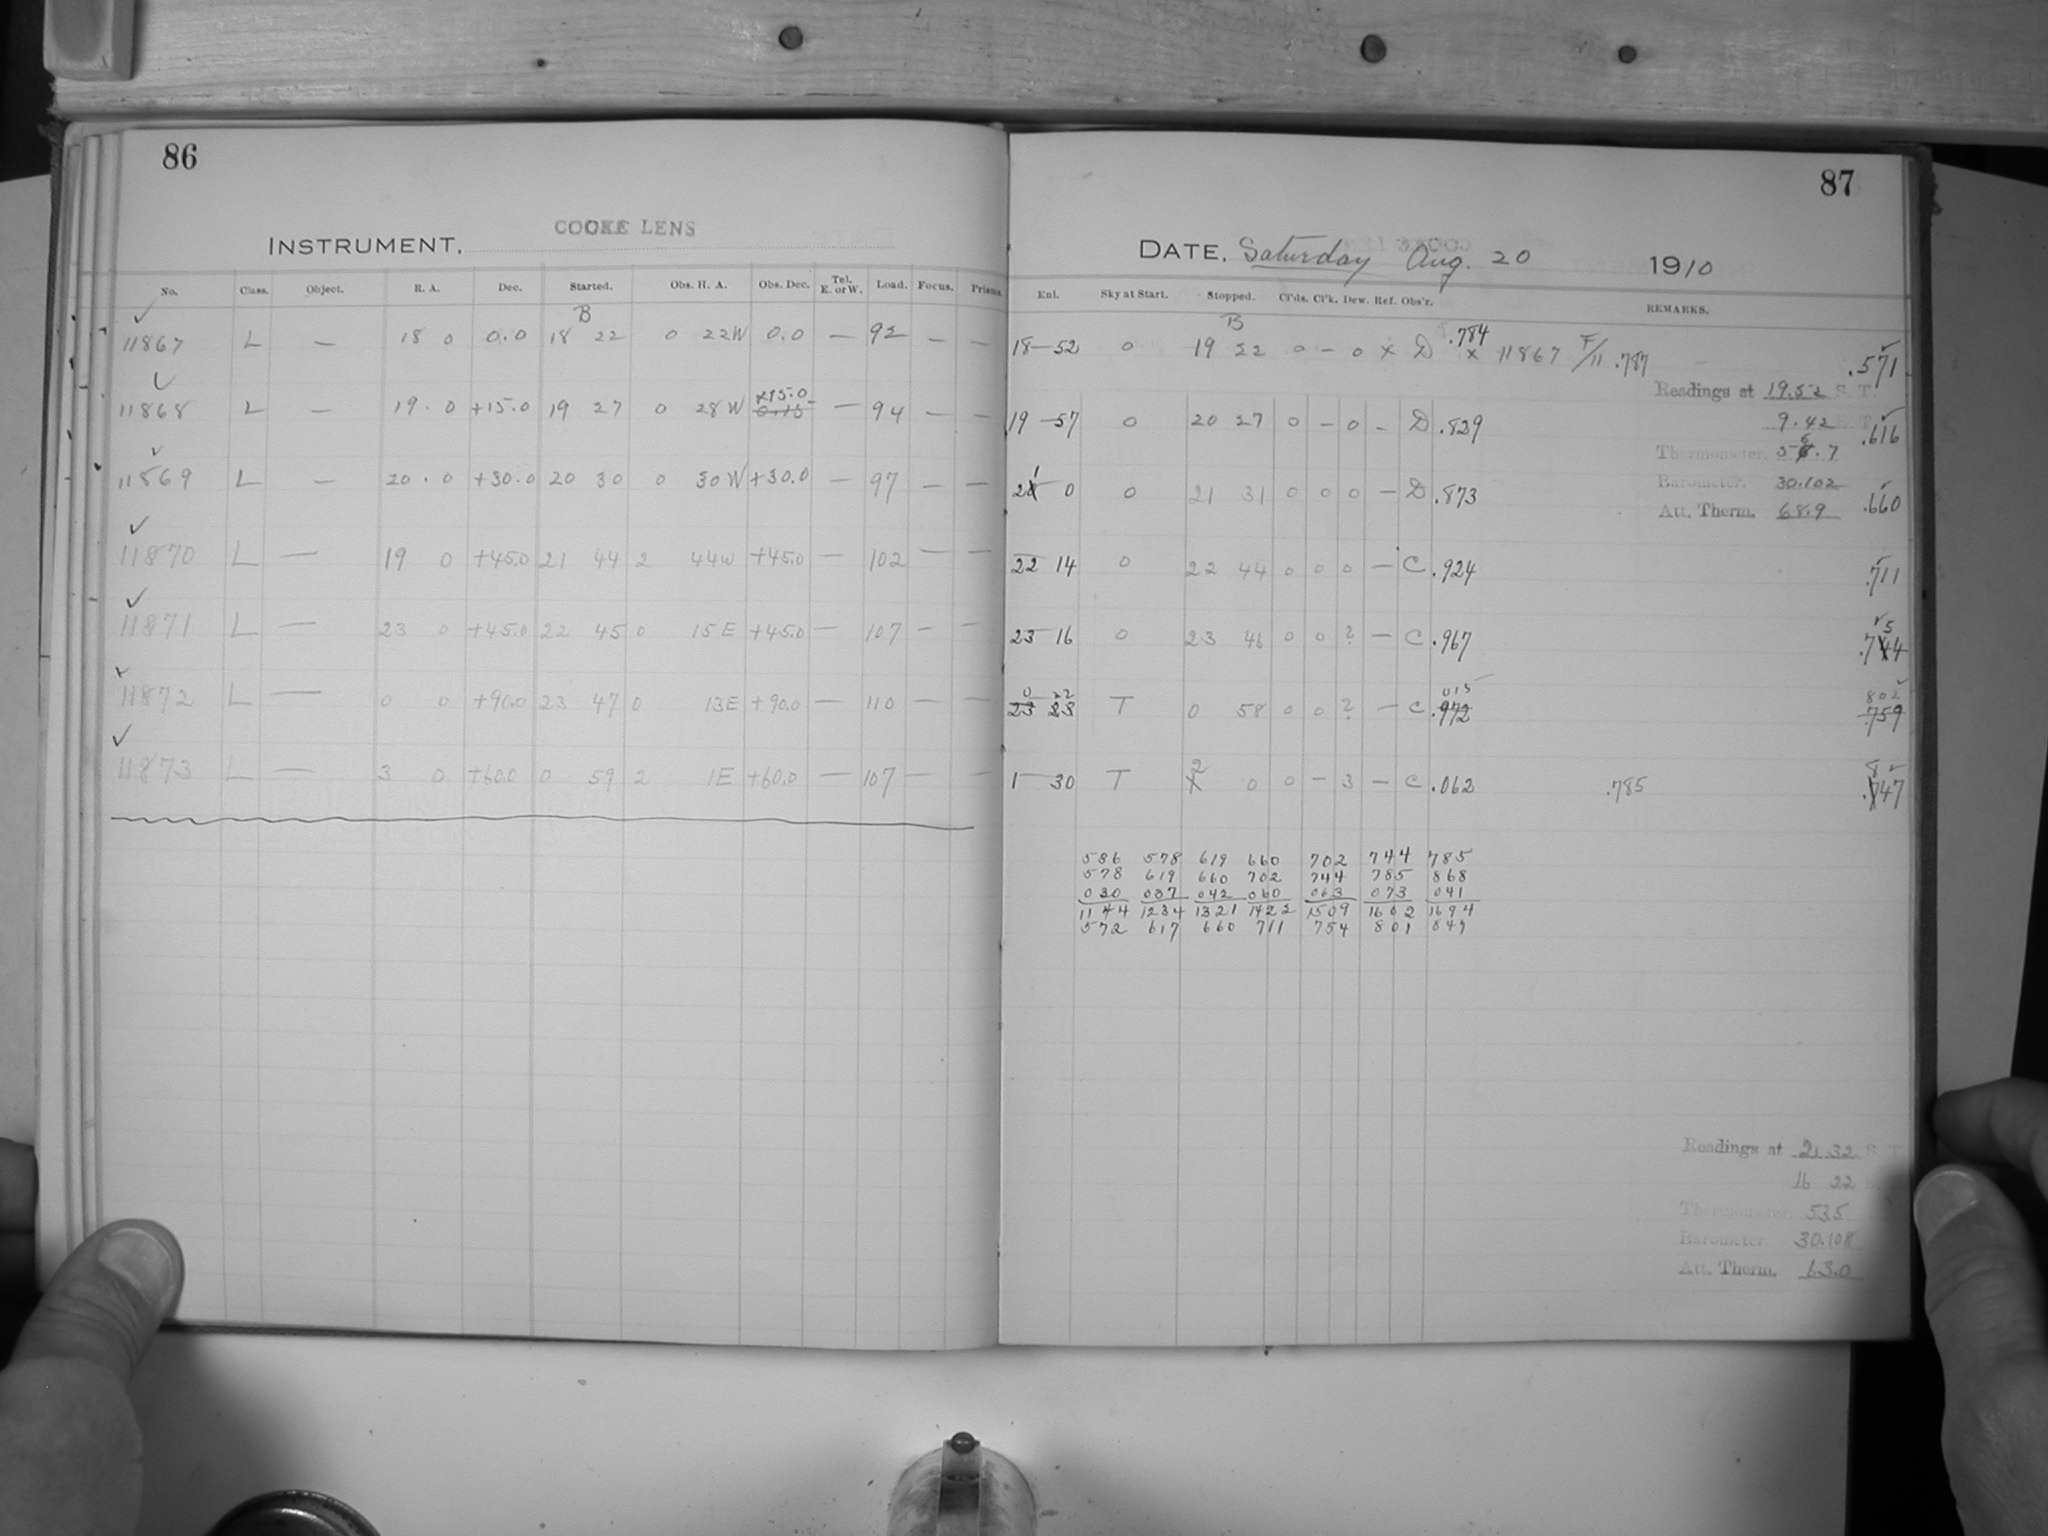 86
COOKE LENS
INSTRUMENT,
No. Class. Object. R. A. Dec. Started. Obs. H. A. Obs. Dec. Tel. E. or W. Load. Focus. Prisms.
B
11867 L — 18 0 0.0 18 22 0 22W 0.0 — 92 — —
+15.0
11868 L — 19.0 +15.0 19 27 0 28W 0.15 — 94 — —
11869 L — 20.0 +30.0 20 30 0 30W +30.0 — 97 — —
11870 L — 19 0 +45.0 21 44 2 44W +45.0 — 102 — —
11871 L — 23 0 +45.0 22 45 0 15E +45.0 — 107 — —
11872 L — 0 0 +90.0 23 47 0 13E +90.0 — 110 — —
11873 L — 3 0 +60.0 0 59 2 1E +60.0 — 107 — —
87
DATE, Saturday Aug. 20 1910
Enl. Sky at Start. Stopped. Cl'ds. Cl'k. Dew. Ref. Obs'r. REMARKS.
B
18—52 0 19 22 0 — 0 x D .784 x 11867 F/11 .787 .571
Readings at 19.52 S. T.
9.42
19—57 0 20 27 0 — 0 — D .829 .616
Thermometer. 56.7
Barometer. 30.102
21 0 0 21 31 0 0 0 — D .873 .660
Att. Therm. 68.9
22 14 0 22 44 0 0 0 — C .924 .711
23 16 0 23 46 0 0 ? — C .967 .754
0 22 015 802
23 23 T 0 58 0 0 ? — C .972 .759
1—30 T 2 0 0 — 3 — C .062 .785 .847
586 578 619 660 702 744 785
578 619 660 702 744 785 868
030 037 042 060 063 073 041
1144 1234 1321 1422 1509 1602 1694
572 617 660 711 754 801 847
Readings at 2.32 S. T.
16 22
Thermometer. 53.5
Barometer. 30.108
Att. Therm. 63.0